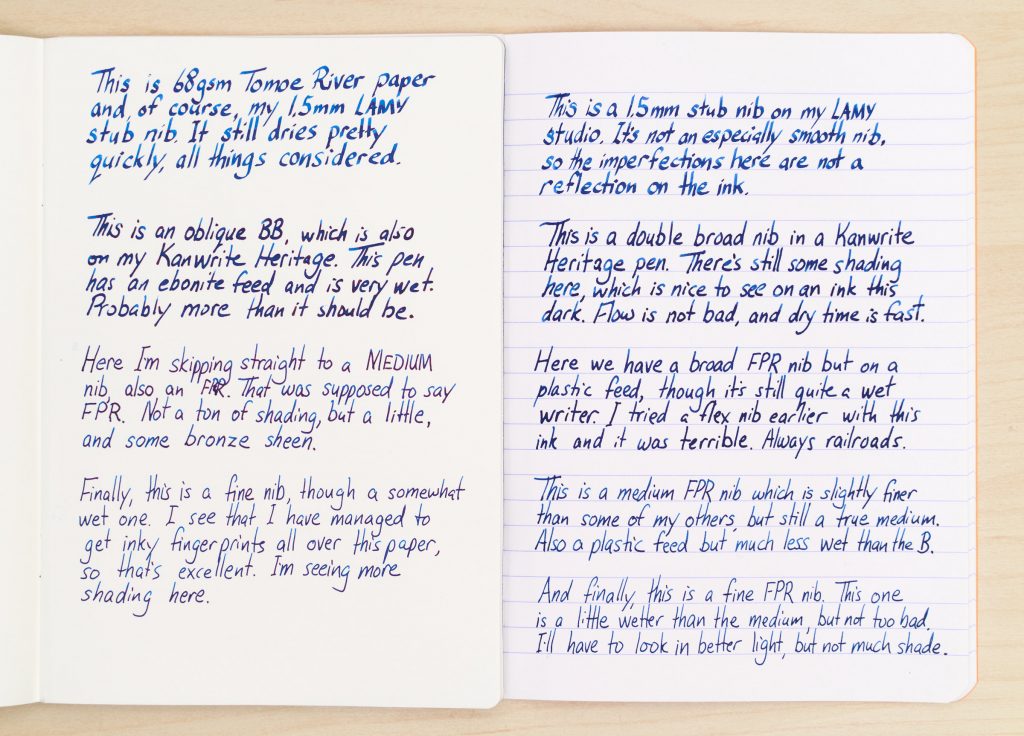 This is 68gsm Tomoe River paper
and, of course, my 1.5mm LAMY
stub nib. It still dries pretty
quickly, all things considered.
This is an oblique BB, which is also
on my Kanwrite Heritage. This pen
has an ebonite feed and is very wet.
Probably more than it should be.
Here I'm skipping straight to a MEDIUM
nib, also an FPR. That was supposed to say
FPR. Not a ton of shading, but a little,
and some bronze sheen.
Finally, this is a fine nib, though a somewhat
wet one. I see that I have managed to
get inky fingerprints all over this paper,
so that's excellent. I'm seeing more
shading here.
This is a 1.5mm stub nib on my LAMY
studio. It's not an especially smooth nib,
so the imperfections here are not a
reflection on the ink.
This is a double broad nib in a Kanwrite
Heritage pen. There's still some shading
here, which is nice to see on an ink this
dark. Flow is not bad, and dry time is fast.
Here we have a broad FPR nib but on a
plastic feed, though it's still quite a wet
writer. I tried a flex nib earlier with this
ink and it was terrible. Always railroads.
This is a medium FPR nib which is slightly finer
than some of my others, but still a true medium.
Also a plastic feed but much less wet than the B.
And finally, this is a fine FPR nib. This one
is a little wetter than the medium, but not too bad.
I'll have to look in better light, but not much shade.